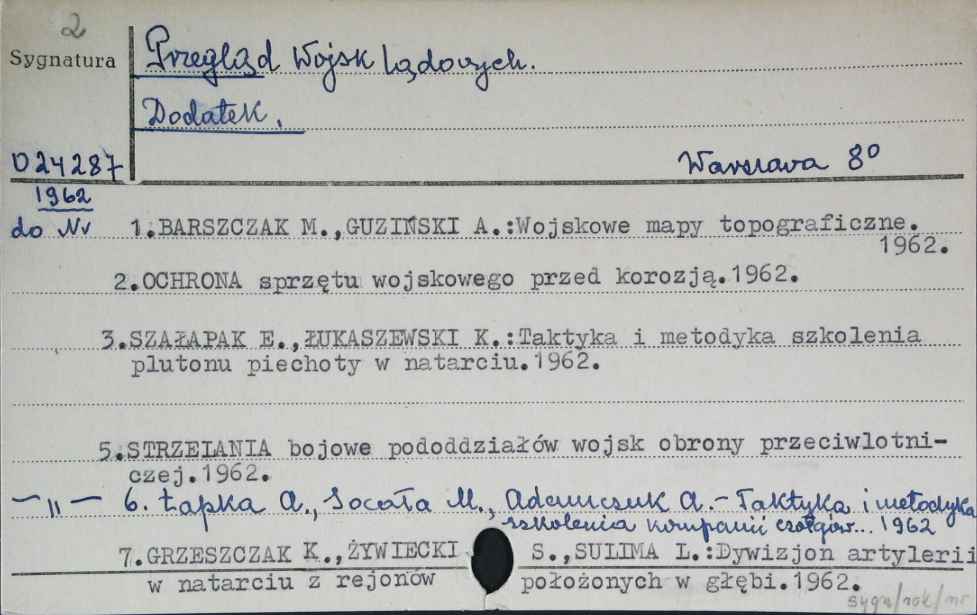 2
Sygnatura
Przegląd Wojsk Lądowych.
Dodatek.
024287
Warszawa 8⁰
1962
do Nr
1.BARSZCZAK M.,GUZIŃSKI A.:Wojskowe mapy topograficzne.
1962.
2.OCHRONA sprzętu wojskowego przed korozją.1962.
3.SZAŁAPAK E.,ŁUKASZEWSKI K.:Taktyka i metodyka szkolenia
plutonu piechoty w natarciu.1962.
5.STRZELANIA bojowe pododdziałów wojsk obrony przeciwlotni-
czej.1962.
—„— 6. Łapka A., Socała M., Adamczuk A. - Taktyka i metodyka
szkolenia kompanii czołgów... 1962
7.GRZESZCZAK K.,ŻYWIECKI S.,SULIMA L.:Dywizjon artylerii
w natarciu z rejonów położonych w głębi.1962.
sygn/rok/nr